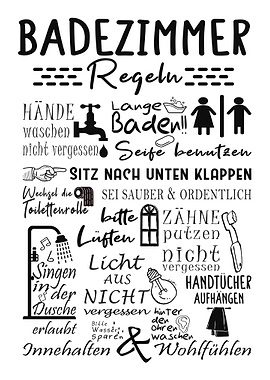 BADEZIMMER
Regeln
HÄNDE
waschen
nicht vergessen
Lange
Baden!!
Seife benutzen
SITZ NACH UNTEN KLAPPEN
Wechsel die
Toilettenrolle
SEI SAUBER & ORDENTLICH
bitte
Lüften
ZÄHNE
putzen
nicht
vergessen
Singen
in der
Dusche
erlaubt
Licht
AUS
NICHT
vergessen
HANDTÜCHER
AUFHÄNGEN
Bitte
Wasser
sparen
hinter
den
ohren
waschen
Innehalten & Wohlfühlen